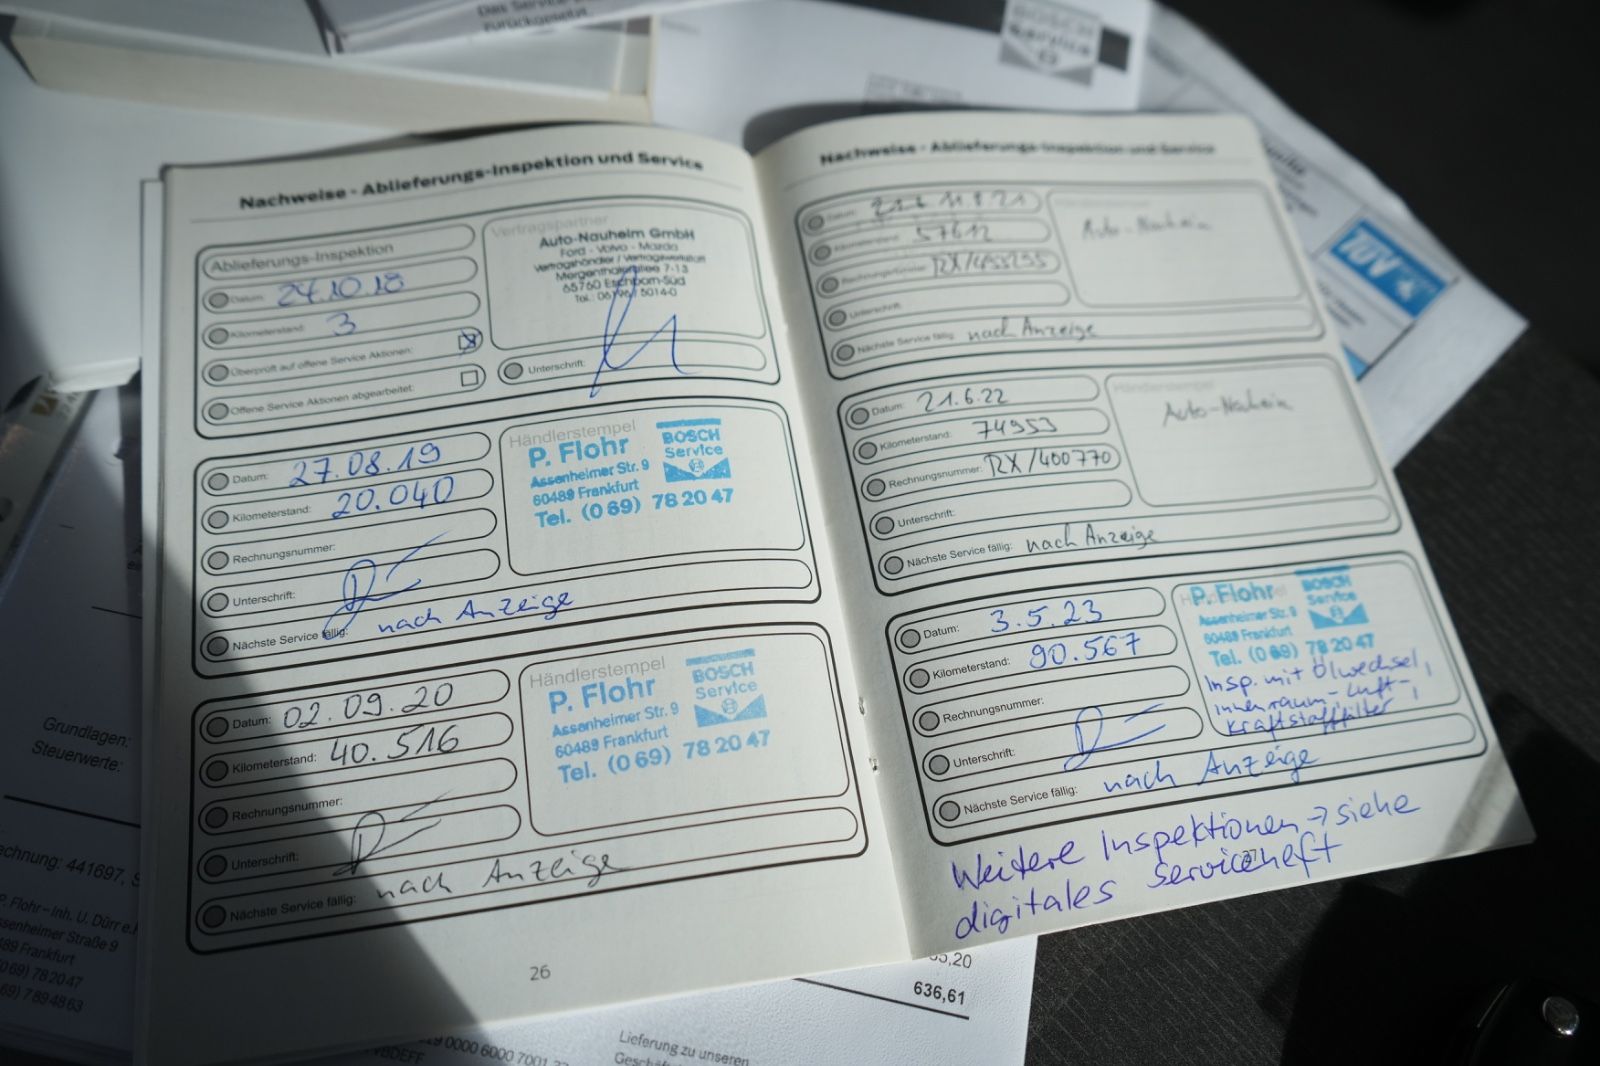 Das Service-
zurückgesetzt.
BOSCH
Service
TÜV
Nachweise - Ablieferungs-Inspektion und Service
Ablieferungs-Inspektion
Datum: 24.10.18
Kilometerstand: 3
Überprüft auf offene Service Aktionen:
Offene Service Aktionen abgearbeitet:
Vertragspartner
Auto-Nauheim GmbH
Ford - Volvo - Mazda
Vertragshändler / Vertragswerkstatt
Mergenthalerallee 7-13
65760 Eschborn-Süd
Tel.: 06196 / 5014-0
Unterschrift:
Datum: 27.08.19
Kilometerstand: 20.040
Rechnungsnummer:
Unterschrift:
Nächste Service fällig: nach Anzeige
Händlerstempel
P. Flohr
Assenheimer Str. 9
60489 Frankfurt
Tel. (0 69) 78 20 47
BOSCH
Service
Datum: 02.09.20
Kilometerstand: 40.516
Rechnungsnummer:
Unterschrift:
Nächste Service fällig: nach Anzeige
Händlerstempel
P. Flohr
Assenheimer Str. 9
60489 Frankfurt
Tel. (0 69) 78 20 47
BOSCH
Service
26
Nachweise - Ablieferungs-Inspektion und Service
Datum:
Kilometerstand: 57612
Rechnungsnummer:
Unterschrift:
Nächste Service fällig: nach Anzeige
Händlerstempel
Auto-Nauheim
Datum: 21.6.22
Kilometerstand: 74953
Rechnungsnummer: RX/400770
Unterschrift:
Nächste Service fällig: nach Anzeige
Händlerstempel
Auto-Nauheim
Datum: 3.5.23
Kilometerstand: 90.567
Rechnungsnummer:
Unterschrift:
Nächste Service fällig: nach Anzeige
P. Flohr
Assenheimer Str. 9
60489 Frankfurt
Tel. (0 69) 78 20 47
BOSCH
Service
Insp. mit Ölwechsel,
Innenraum-, Luft-,
Kraftstofffilter
Weitere Inspektionen → siehe
digitales Serviceheft
27
Grundlagen:
Steuerwerte:
echnung: 441697, S
P. Flohr – Inh. U. Dürr e.K
ssenheimer Straße 9
489 Frankfurt
0 69) 78 20 47
69) 7 89 48 63
5,20
636,61
19 0000 6000 7001
VBDEFF
Lieferung zu unseren
Geschäf